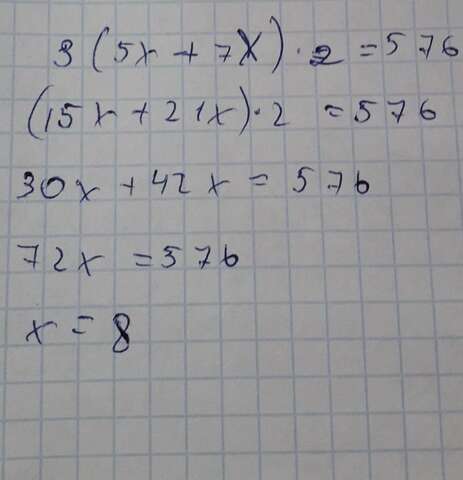 3(5x + 7x) · 2 = 576
(15x + 21x) · 2 = 576
30x + 42x = 576
72x = 576
x = 8